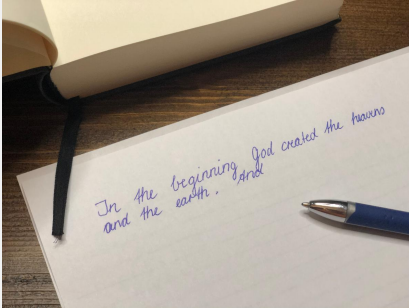 In the beginning God created the heavens
and the earth. And